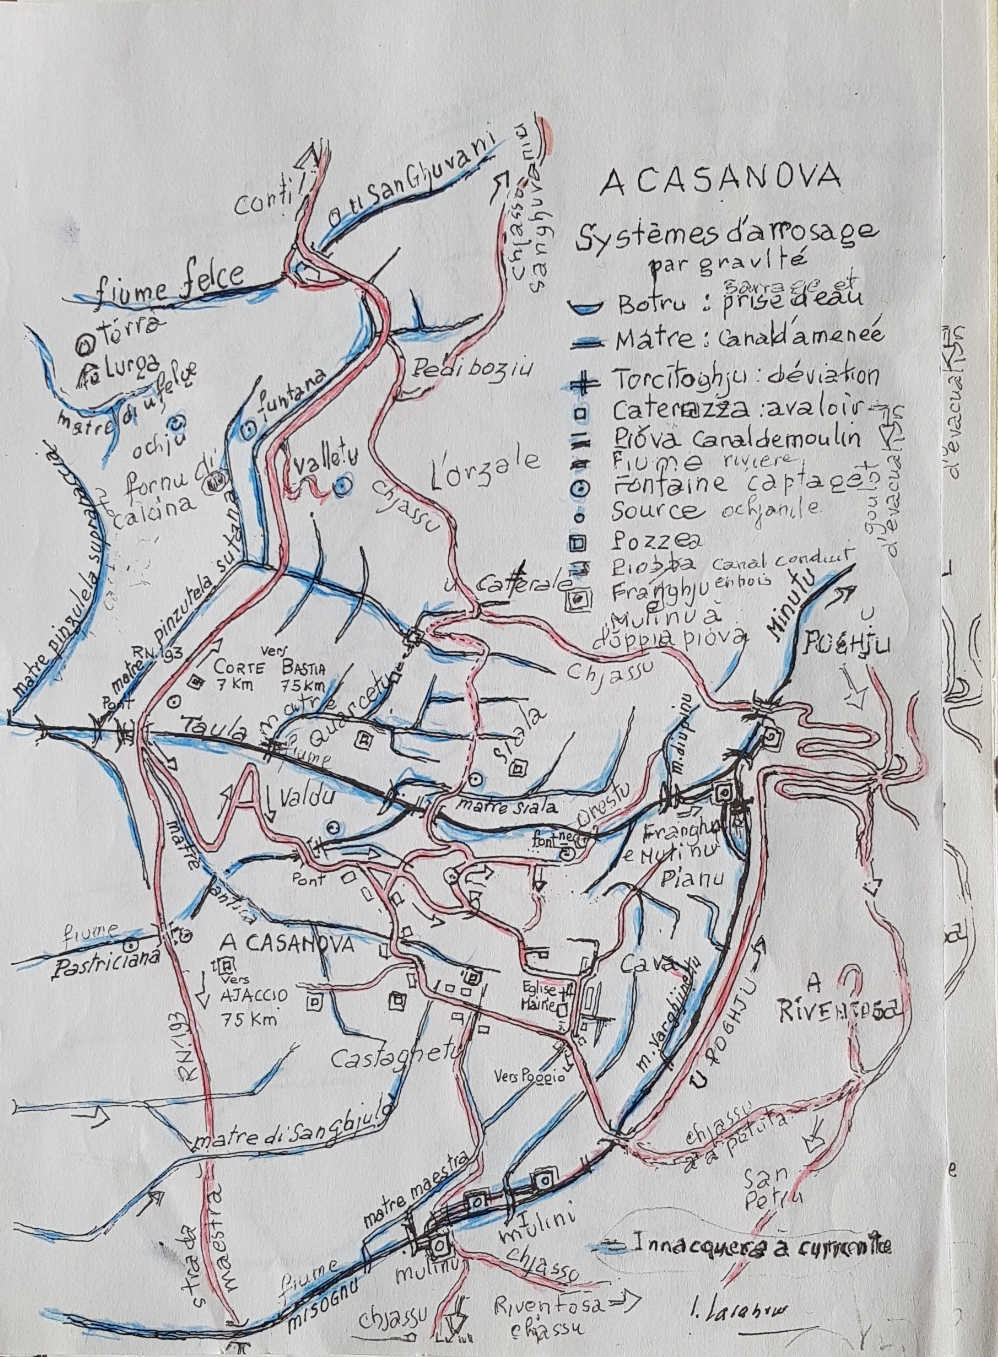 A CASANOVA
Systèmes d'arrosage
par gravité
Barrage et
Botru : prise d'eau
Matre : Canal d'amenée
Torcitoghju : déviation
Caterazza : avaloir
Piòva Canal de moulin
Fiume rivière
Fontaine captage
Source ochjanile
Pozzea
Canal conduit
en bois
Franghju
Mulinu à
doppia piòva
goulot
d'évacuation
Conti
U San Ghjuvani
Chjassu
San ghjuvani
fiume felce
Torra
Lurga
matre di u felce
ochju
fornu di
calcina
funtana
Valletu
Pedi boziu
L'orzale
Chjassu
u Catterale
Chjassu
Minutu
U
POGHJU
matre pinzutela suprana
matre pinzutela sutana
RN.193
Pont
vers
CORTE BASTIA
7 Km 75 Km
Taula
matre
Quarcetu
fiume
Valdu
Siala
matre siala
Onostu
font
Franghju
e Mulinu
Pianu
matre
antica
Pont
fiume
Pastriciana
A CASANOVA
Vers
AJACCIO
75 Km
RN.193
Eglise
Mairie
Cava
m. Varghjinetu
U POGHJU
A
RIVENTOSA
Castaghetu
Vers Poggio
matre di Sanghjulu
matre maestra
chjassu
a a petuta
San
Petru
strada
maestra
fiume
misognu
mulinu
Mulini
chjassu
Riventosa
chjassu
chjassu
Innacquera à currente